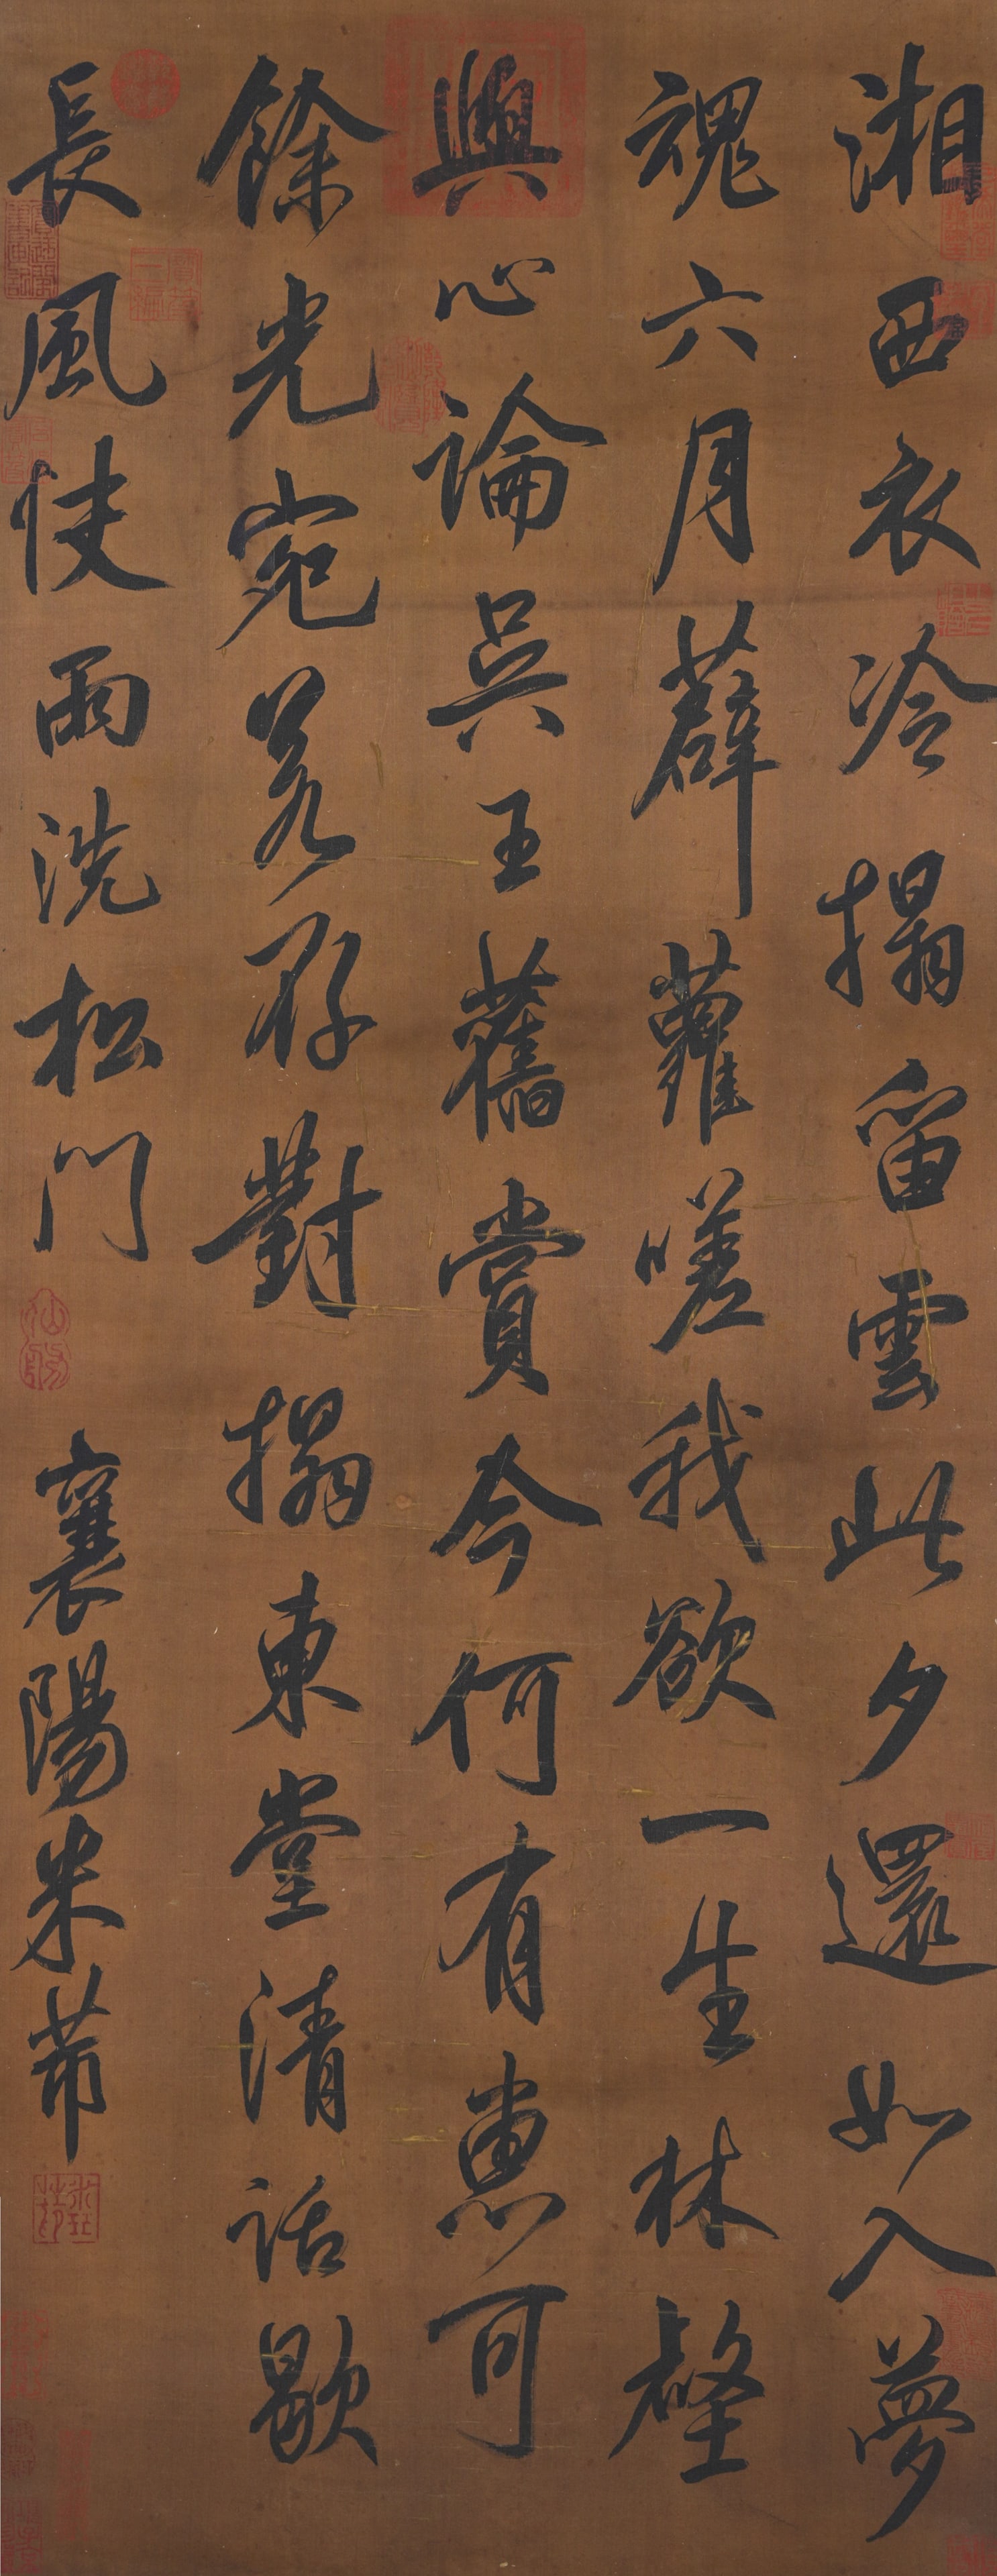 湘西衣冷搨留雲此夕還如入夢
魂六月薜蘿嗟我欲一生林壑
與心論吳王舊賞今何有惠可
餘光宛若存對搨東堂清話歇
長風快雨洗松門
襄陽米芾